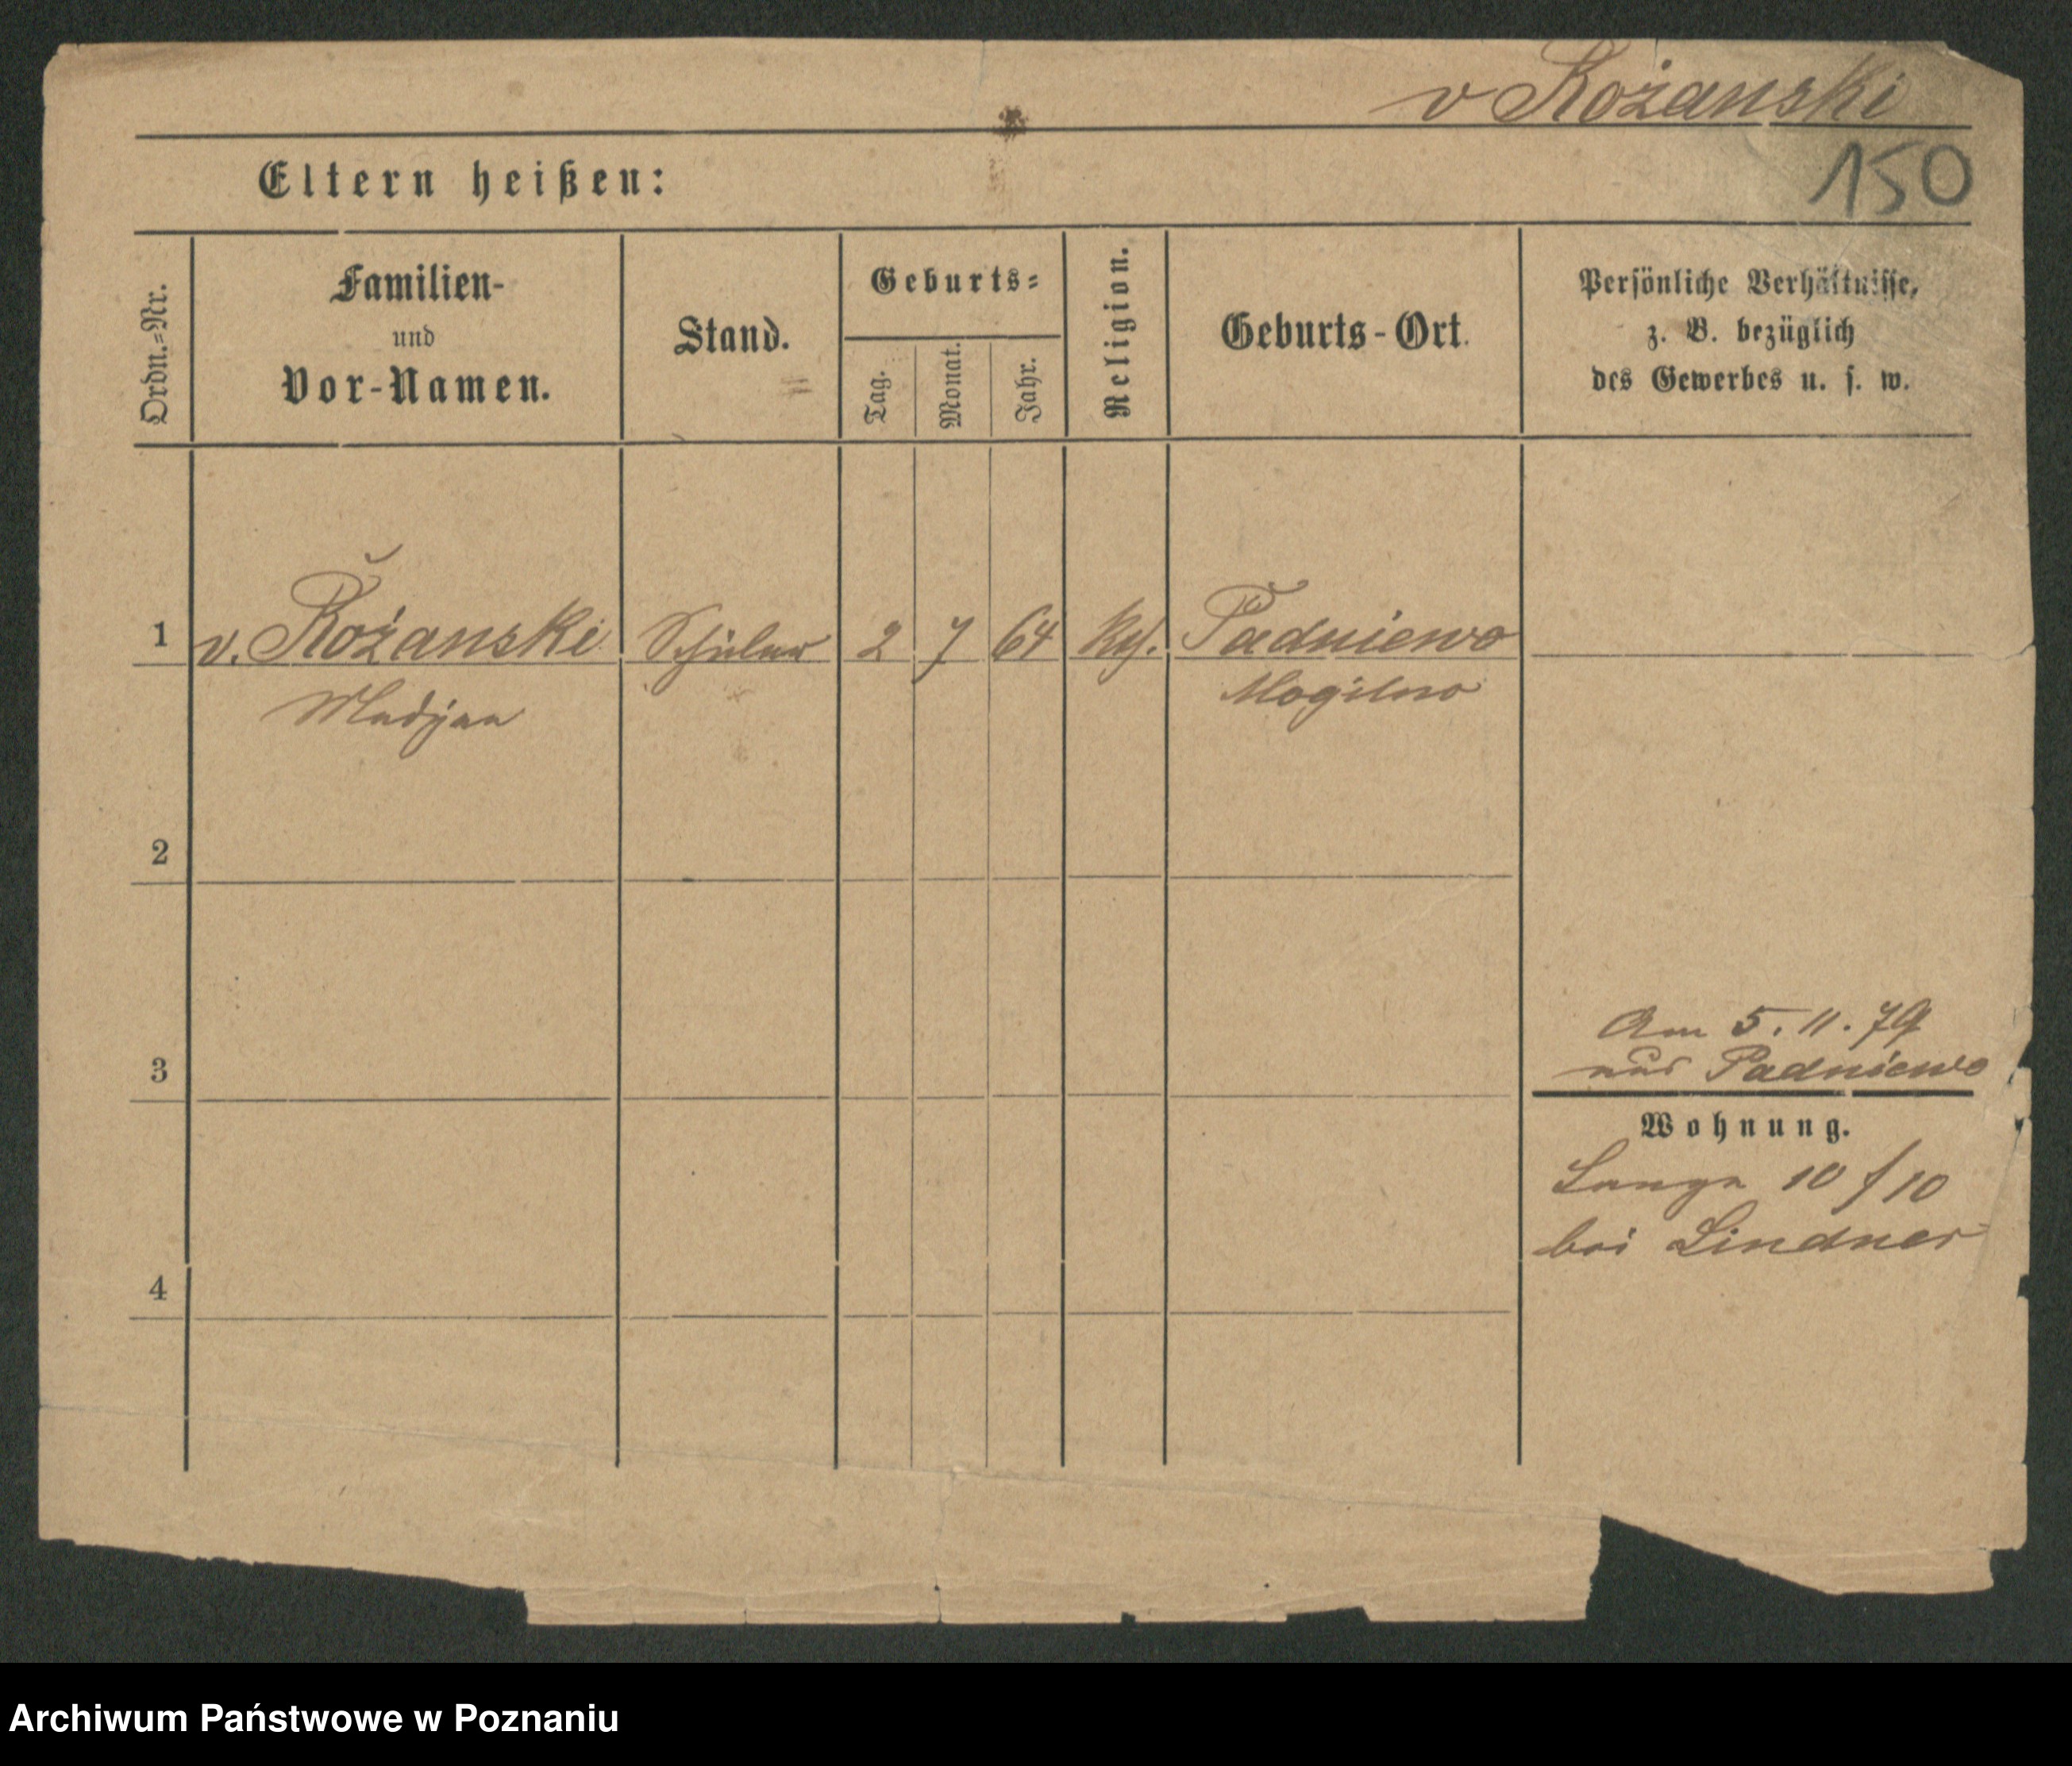 v Rożanski
150
Eltern heißen:
Ordn.-Nr.
Familien-
und
Vor-Namen.
Stand.
Geburts-
Tag.
Monat.
Jahr.
Religion.
Geburts-Ort.
Persönliche Verhältnisse,
z. B. bezüglich
des Gewerbes u. s. w.
1 v. Rożanski Schüler 2 7 64 kth. Padniewo
Mogilno
2
3
Am 5. 11. 79
aus Padniewo
Wohnung.
Lange 10 / 10
bei Lindner
4
Archiwum Państwowe w Poznaniu